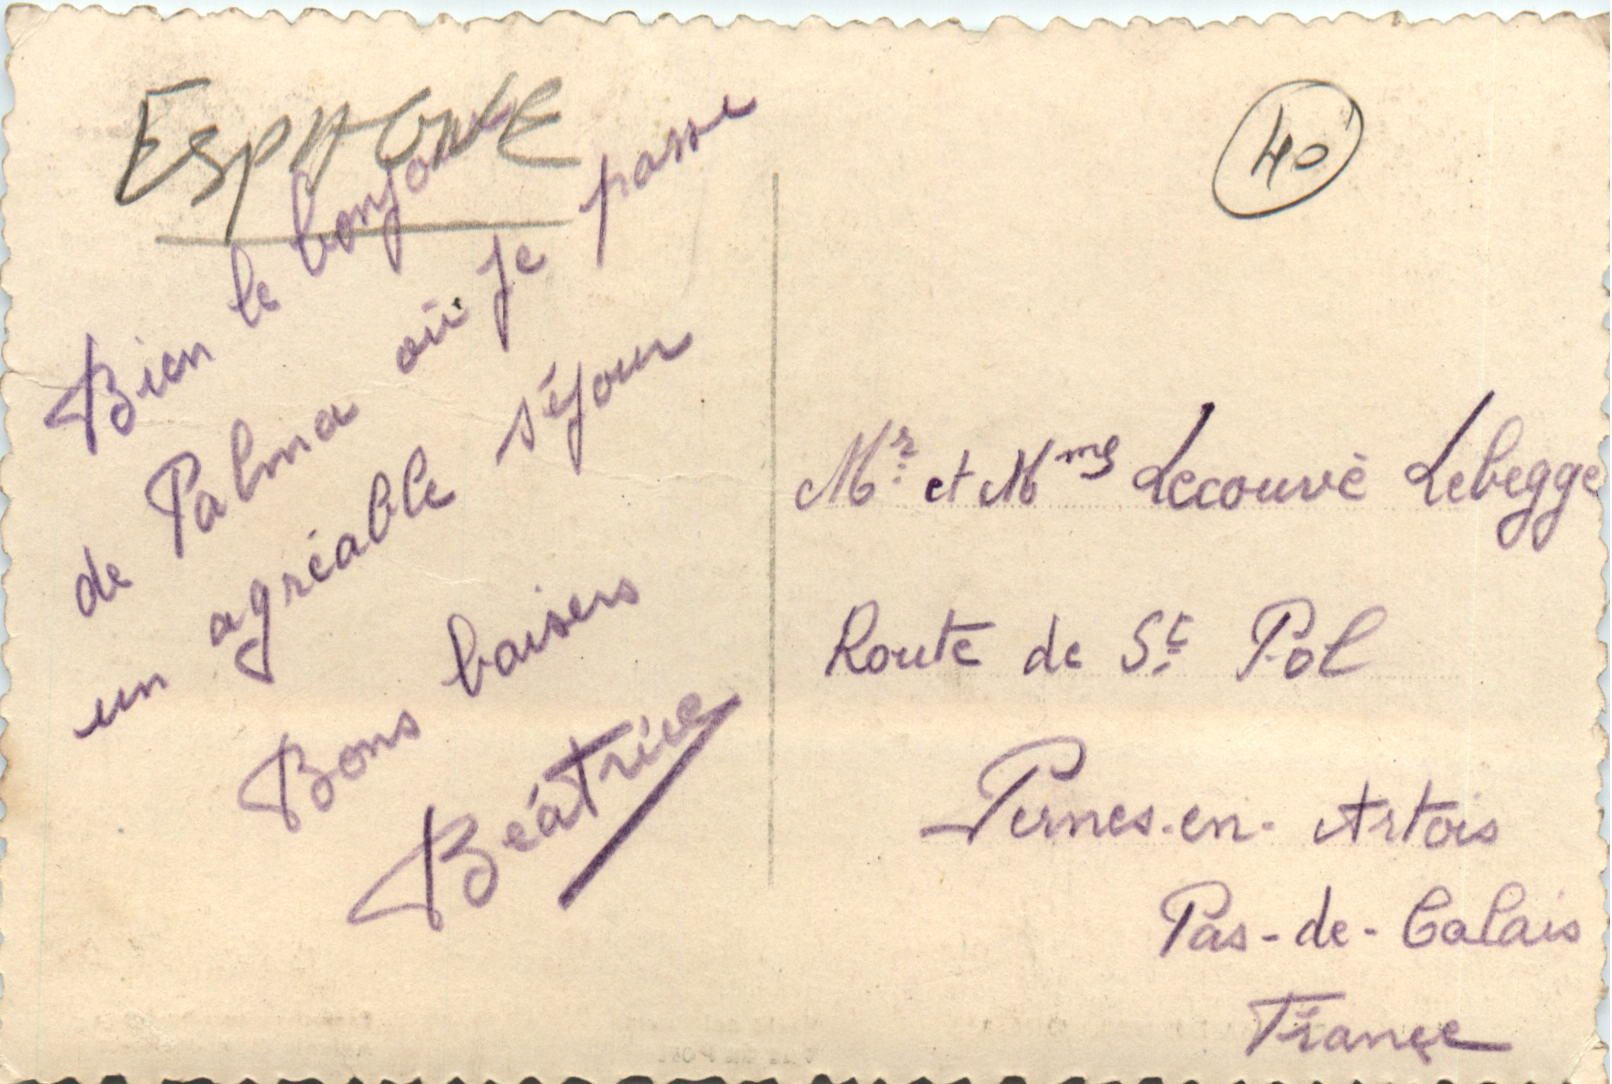 ESPAGNE
40
Bien le bonjour
de Palma où je passe
un agréable séjour
Bons baisers
Béatrice
Mr et Mme Lecouvé Lebegge
Route de St Pol
Pernes-en-Artois
Pas-de-Calais
France